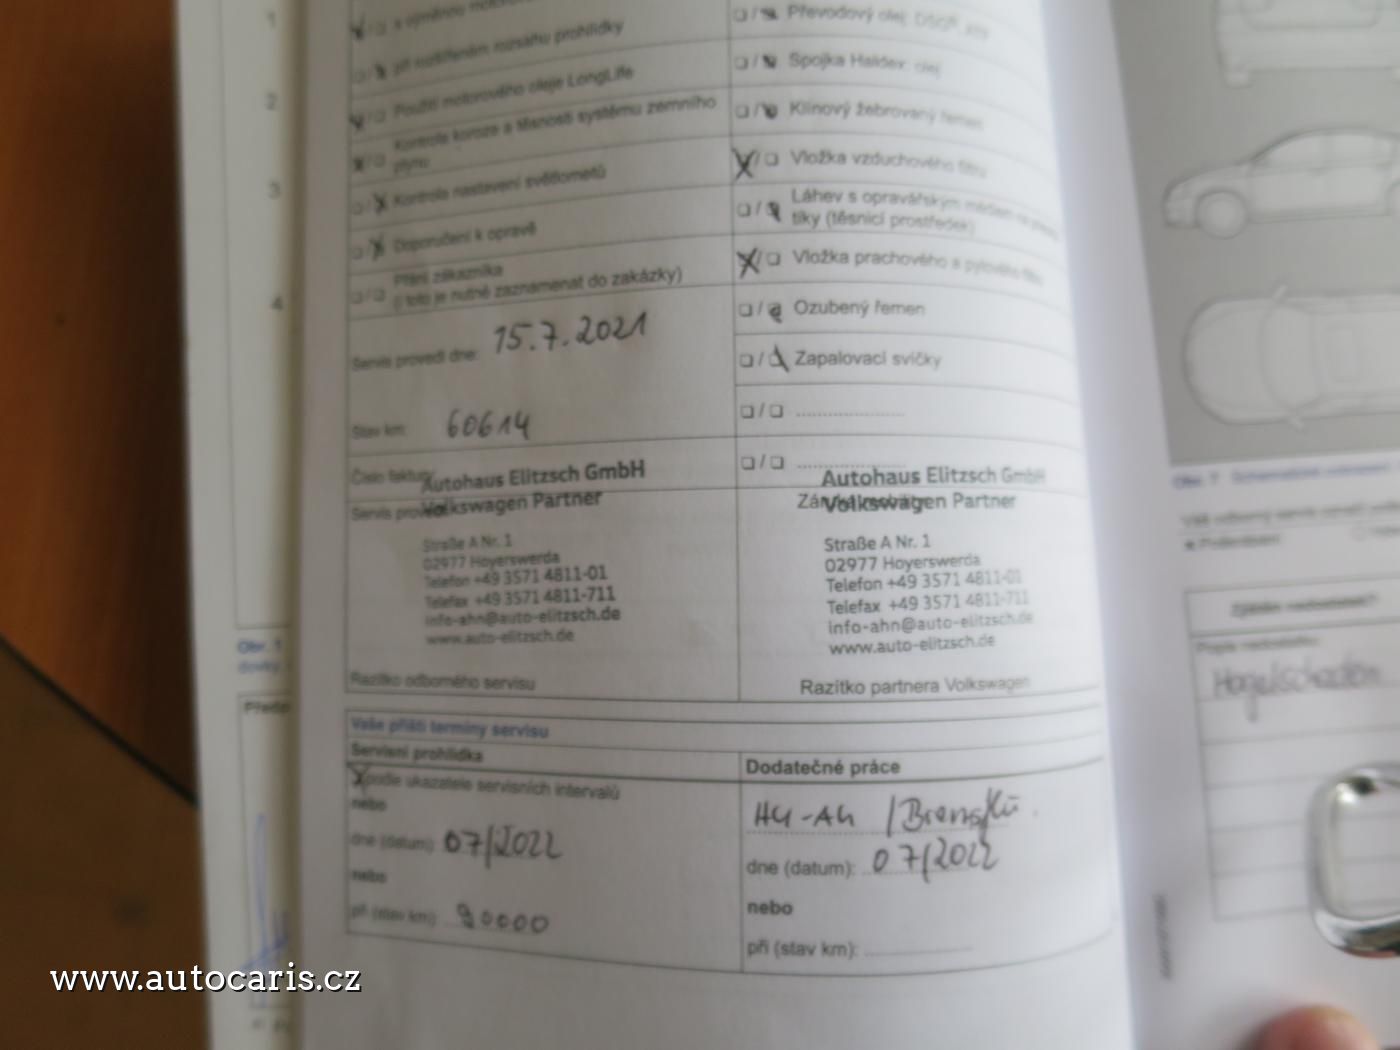 1
2
3
4
s výměnou motorového
při rozšířeném rozsahu prohlídky
Použití motorového oleje LongLife
Kontrola koroze a těsnosti systému zemního
plynu
Kontrola nastavení světlometů
Doporučení k opravě
Přání zákazníka
(i toto je nutné zaznamenat do zakázky)
Servis provedl dne: 15.7.2021
Stav km: 60614
Číslo faktury
Autohaus Elitzsch GmbH
Volkswagen Partner
Servis provedl
Straße A Nr. 1
02977 Hoyerswerda
Telefon +49 3571 4811-01
Telefax +49 3571 4811-711
info-ahn@auto-elitzsch.de
www.auto-elitzsch.de
Razítko odborného servisu
Převodový olej: DSG®
Spojka Haldex: olej
Klínový žebrovaný řemen
Vložka vzduchového filtru
Láhev s opravářským
tiky (těsnicí prostředek)
Vložka prachového a pylového filtru
Ozubený řemen
Zapalovací svíčky
Autohaus Elitzsch GmbH
Záruka mobility
Volkswagen Partner
Straße A Nr. 1
02977 Hoyerswerda
Telefon +49 3571 4811-01
Telefax +49 3571 4811-711
info-ahn@auto-elitzsch.de
www.auto-elitzsch.de
Razítko partnera Volkswagen
Vaše příští termíny servisu
Servisní prohlídka
podle ukazatele servisních intervalů
nebo
dne (datum): 07/2022
nebo
při (stav km): 90000
Dodatečné práce
HU-AU
dne (datum): 07/2022
nebo
při (stav km):
Obr. 1
Obr. 7
Zjištěn nedostatek?
Popis nedostatku:
Hagelschaden
www.autocaris.cz